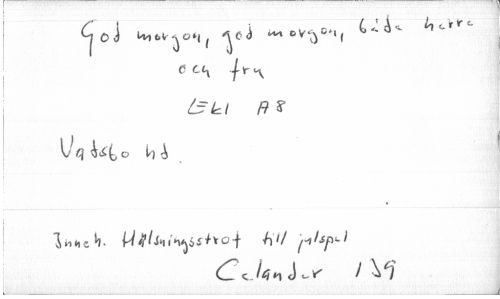 God morgon, god morgon, både herre
och fru
Ekl A8
Vadsbo hd.
Inneh. Hälsningsstrof till julspel
Celander 139